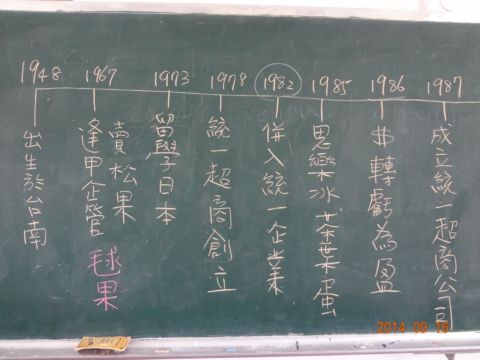 1948 1967 1973 1978 1982 1985 1986 1987
出生於台南
逢甲企管
賣松果
毬果
留學日本
統一超商創立
併入統一企業
思樂冰茶葉蛋
$轉虧為盈
成立統一超商公司
2014 09 16